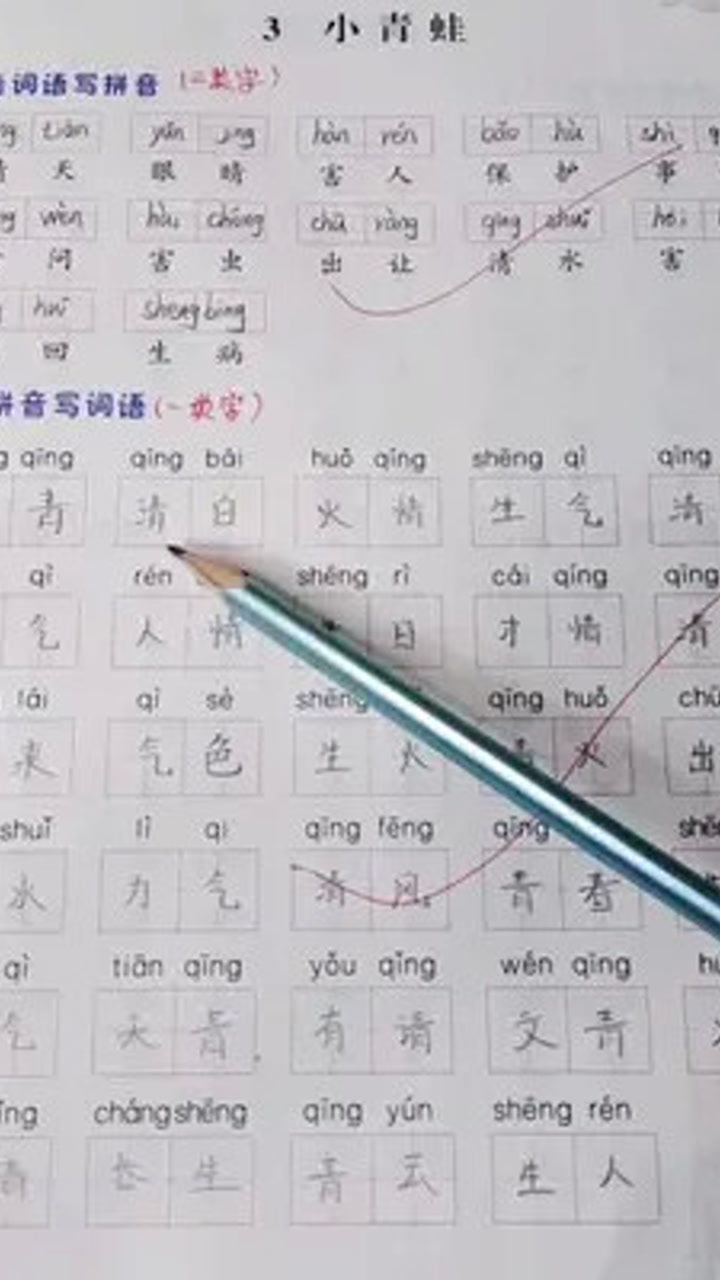 3 小青蛙
词语写拼音（二类字）
tiān yǎn jing hài rén bǎo hù shì
天 眼 睛 害 人 保 护 事
wèn hài chóng chū ràng qīng shuǐ hài
问 害 虫 出 让 清 水 害
huí shēng bìng
回 生 病
拼音写词语（一类字）
qīng qīng bái huǒ qíng shēng qì qīng
青 清 白 火 情 生 气 清
qì rén shēng rì cái qíng qīng
气 人 情 日 才 情 清
lái qì sè shēng qīng huǒ chū
来 气 色 生 火 青 火 出
shuǐ lì qi qīng fēng qīng
水 力 气 清 风 青
qì tiān qīng yǒu qǐng wén qīng
气 天 青 有 请 文 青
cháng shēng qīng yún shēng rén
长 生 青 云 生 人